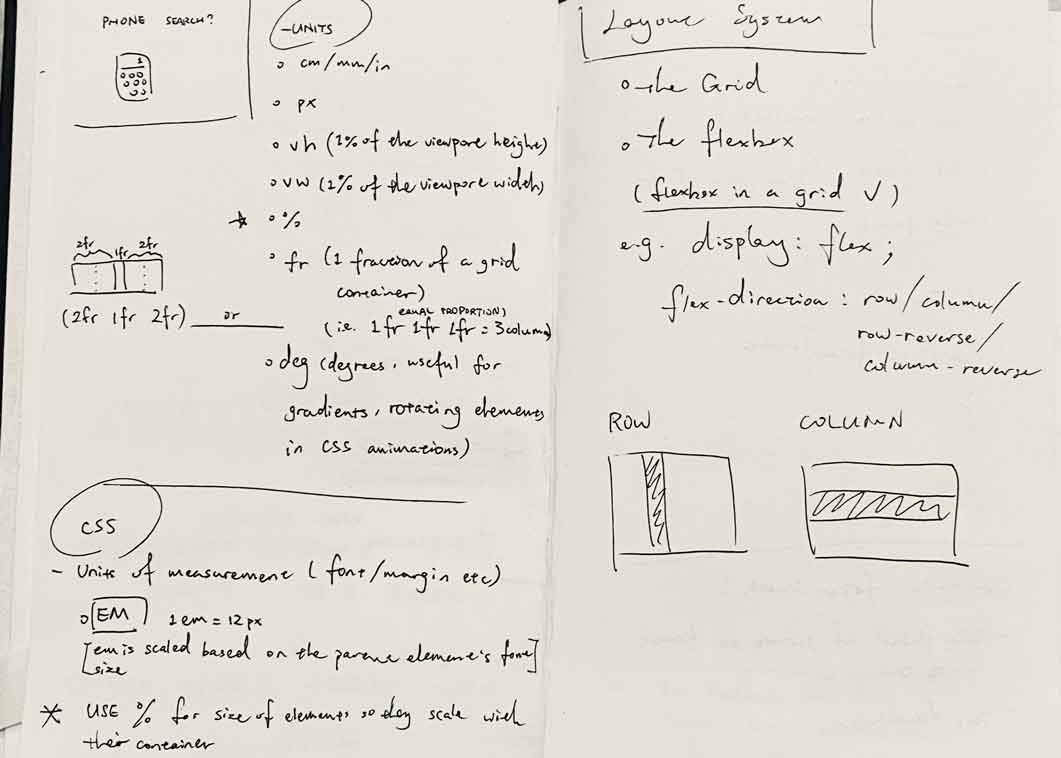 PHONE SEARCH?
1
-UNITS
o cm/mm/in
o px
o vh (1% of the viewport height)
o vw (1% of the viewport width)
* o %
o fr (1 fraction of a grid
container)
EQUAL PROPORTION)
(i.e. 1fr 1fr 1fr = 3column)
2fr 1fr 2fr
(2fr 1fr 2fr) or
o deg (degrees, useful for
gradients, rotating elements
in CSS animations)
CSS
- Units of measurement (font/margin etc)
o EM 1em = 12px
[em is scaled based on the parent element's font]
[size
* USE % for size of elements so they scale with
their container
Layout System
o the Grid
o The flexbox
(flexbox in a grid ✓)
e.g. display: flex;
flex-direction: row/column/
row-reverse/
column-reverse
ROW COLUMN